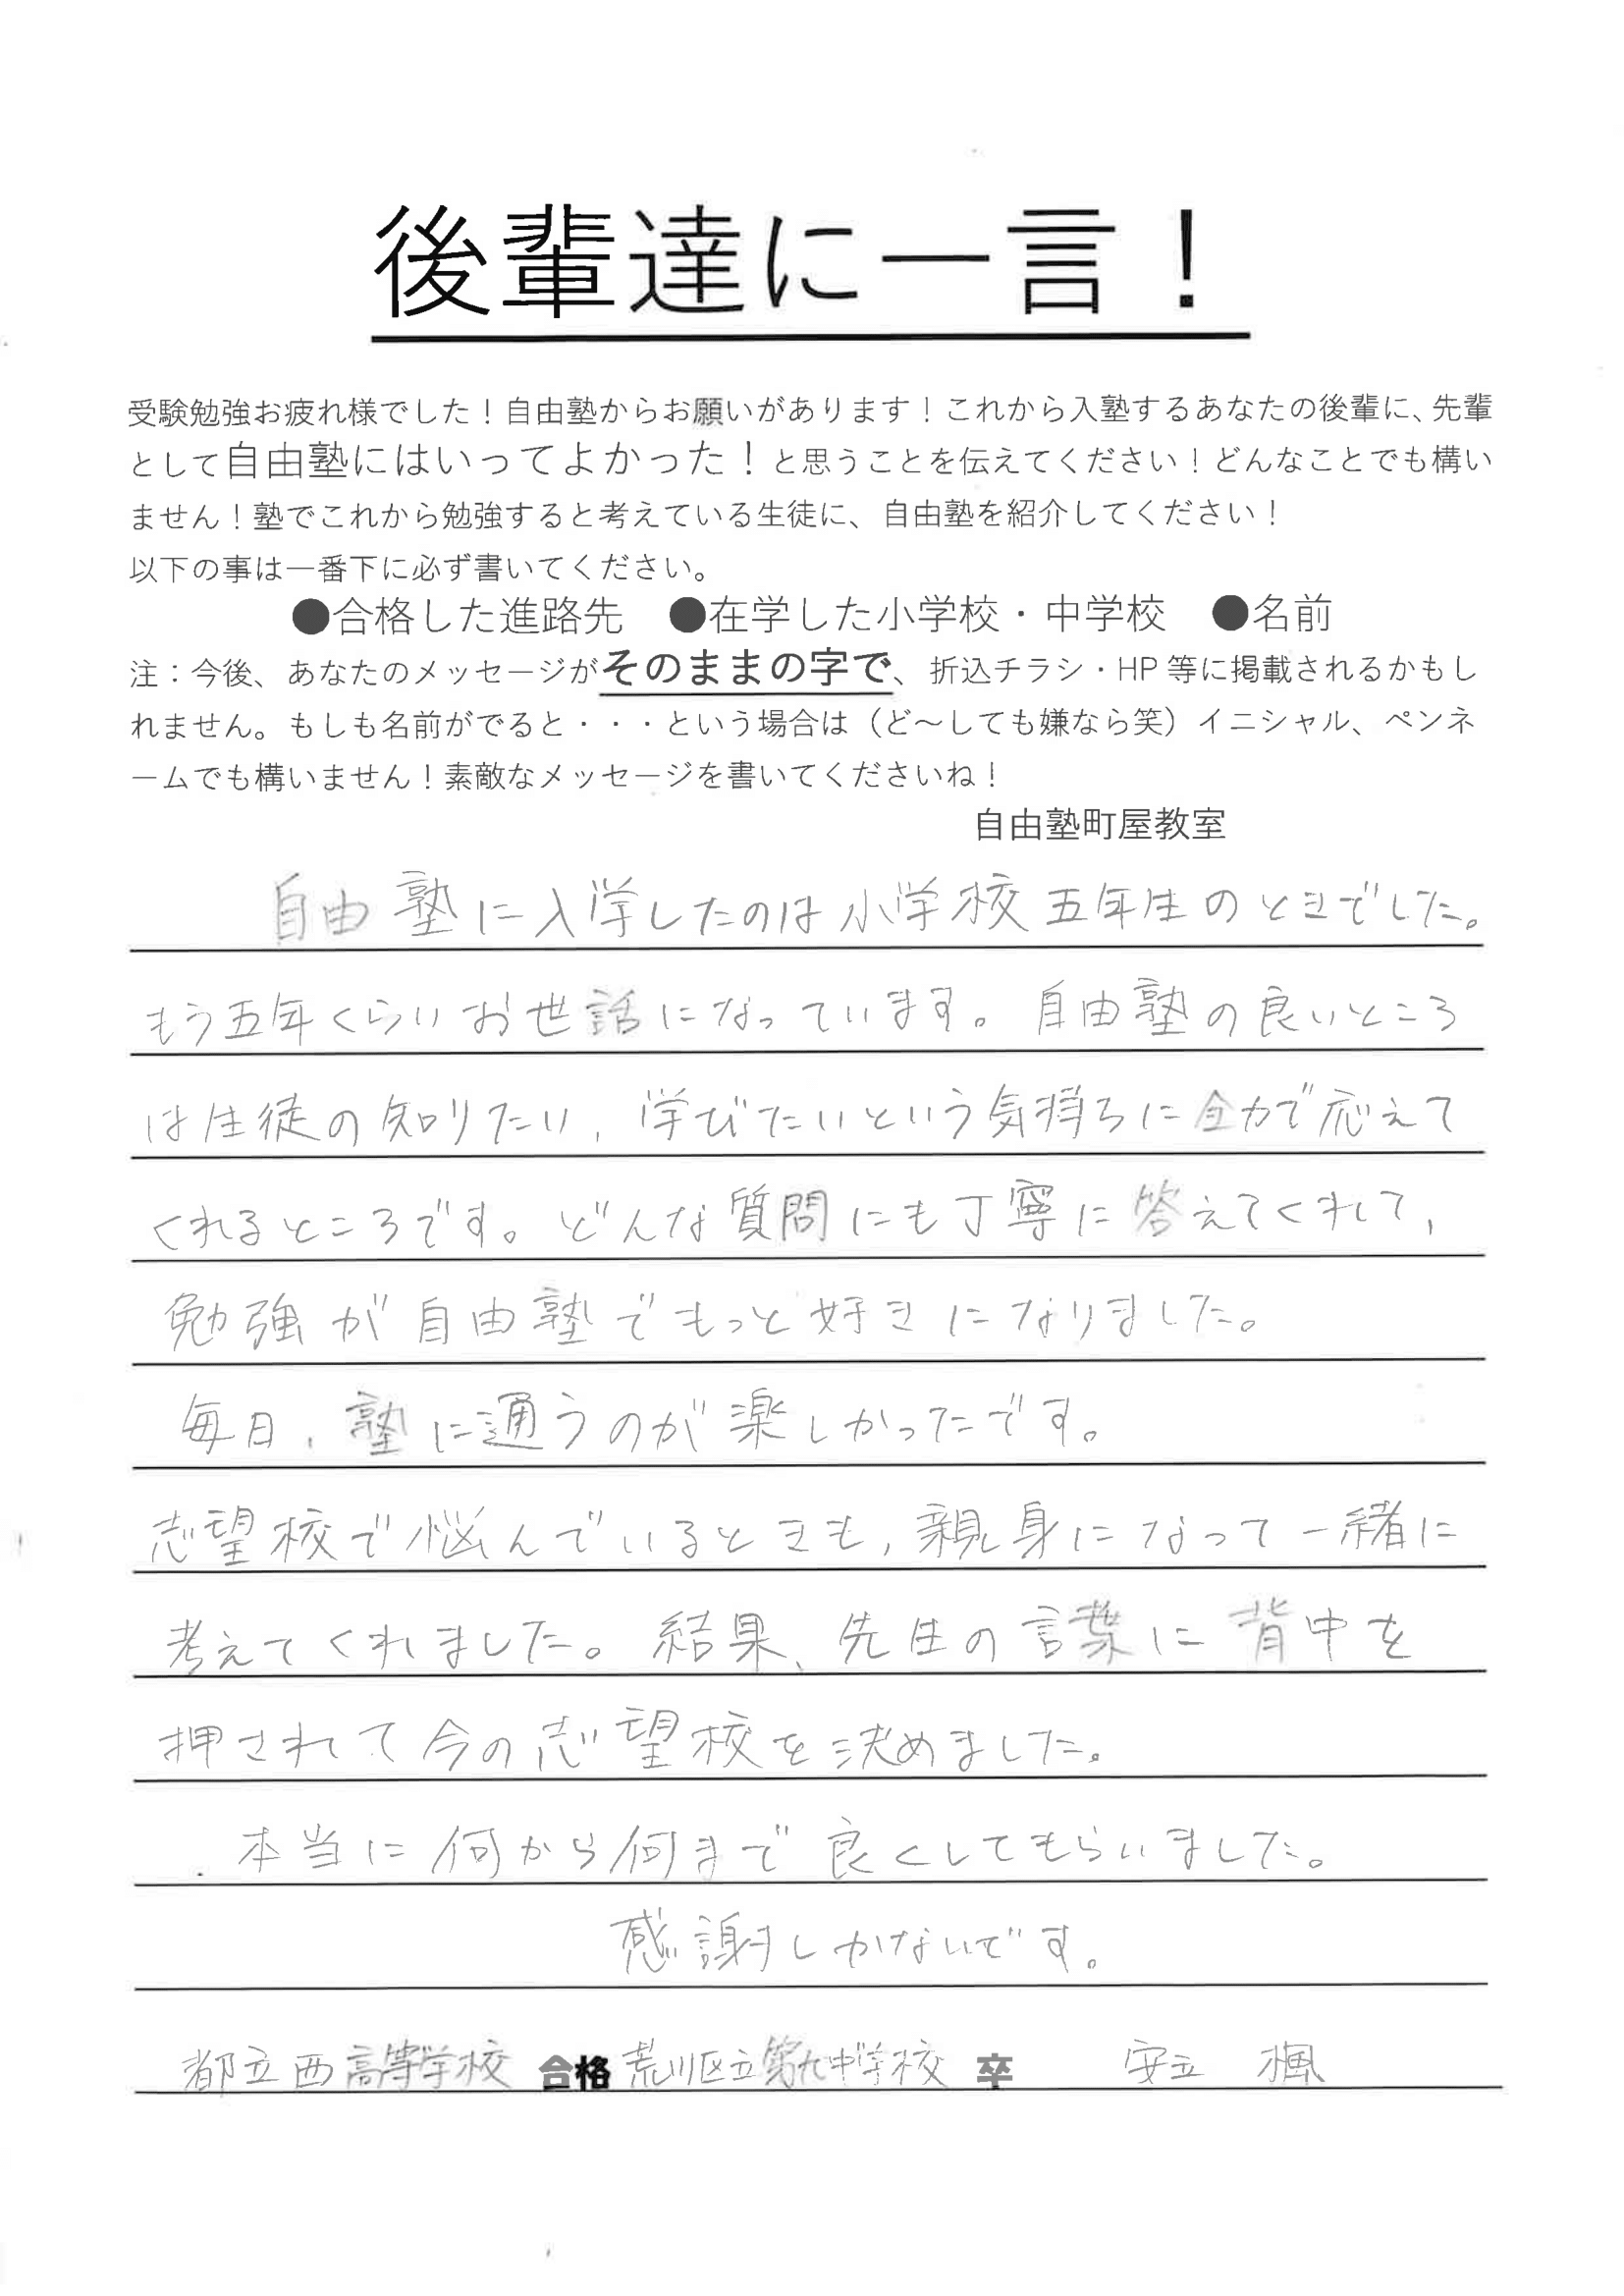 後輩達に一言！
受験勉強お疲れ様でした！自由塾からお願いがあります！これから入塾するあなたの後輩に、先輩
として自由塾にはいってよかった！と思うことを伝えてください！どんなことでも構い
ません！塾でこれから勉強すると考えている生徒に、自由塾を紹介してください！
以下の事は一番下に必ず書いてください。
●合格した進路先　●在学した小学校・中学校　●名前
注：今後、あなたのメッセージがそのままの字で、折込チラシ・HP 等に掲載されるかもし
れません。もしも名前がでると・・・という場合は（ど～しても嫌なら笑）イニシャル、ペンネ
ームでも構いません！素敵なメッセージを書いてくださいね！
自由塾町屋教室
自由塾に入学したのは小学校五年生のときでした。
もう五年くらいお世話になっています。自由塾の良いところ
は生徒の知りたい，学びたいという気持ちに全力で応えて
くれるところです。どんな質問にも丁寧に答えてくれて，
勉強が自由塾でもっと好きになりました。
毎日，塾に通うのが楽しかったです。
志望校で悩んでいるときも，親身になって一緒に
考えてくれました。結果、先生の言葉に背中を
押されて今の志望校を決めました。
本当に何から何まで良くしてもらいました。
感謝しかないです。
都立西高等学校 合格 荒川区立第九中学校 卒　安立　楓